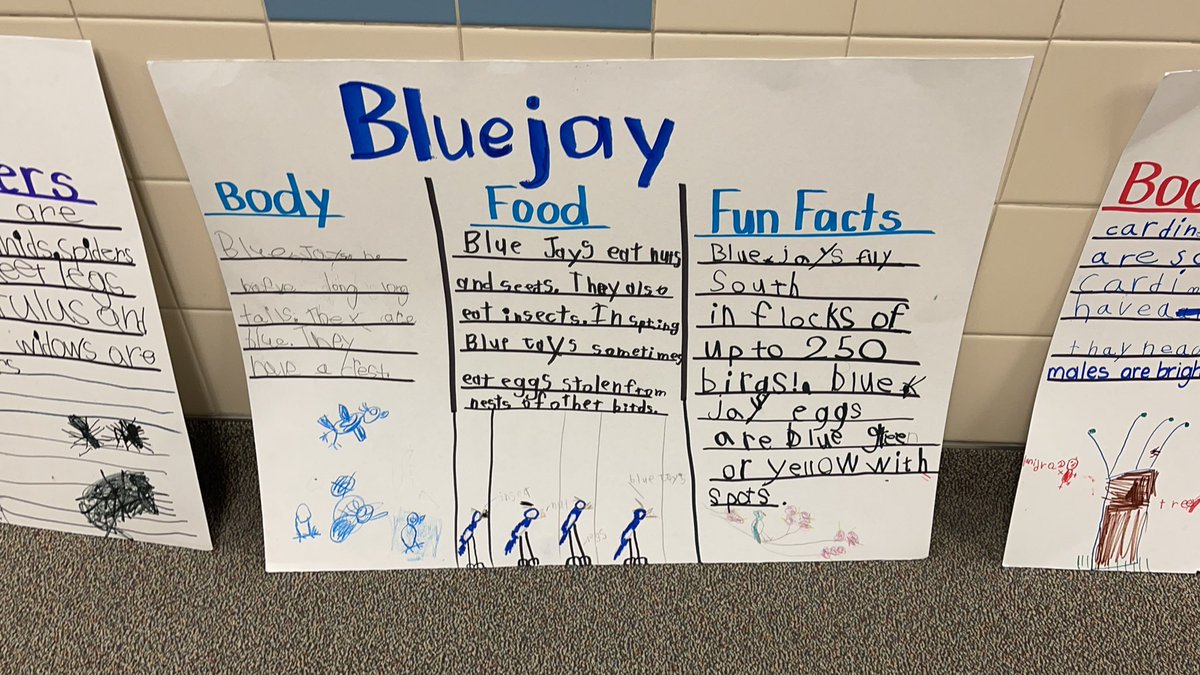 Bluejay
Body
Blue Jays
have long long
tails. They are
blue. They
have a crest.
Food
Blue Jays eat nuts
and seeds. They also
eat insects. In spring
Blue Jays sometimes
eat eggs stolen from
nests of other birds.
insect
blue Jays
Fun Facts
Blue jays fly
South
in flocks of
up to 250
birds!. blue
jay eggs
are blue green
or yellow with
spots.
ers
are
spiders
legs
and
widows are
Bod
cardin
are
Cardin
have
thay head
males are brigh
tre